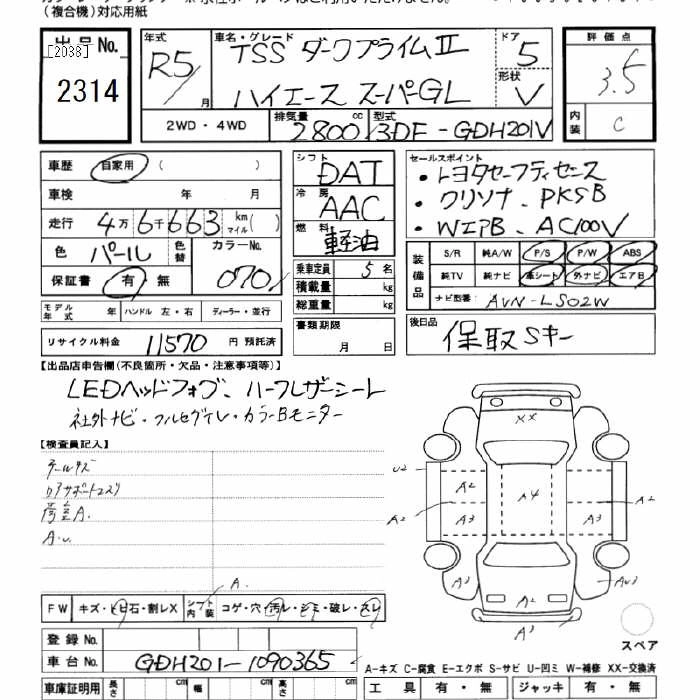 (複合機)対応用紙
出品No.
[2038]
2314
年式 R5/ 月
車名・グレード TSS ダークプライムⅡ
ハイエース スーパーGL
ドア 5
形状 V
評価点
3.5
内装 C
2WD・4WD
排気量 2800 cc
型式 3DF-GDH201V
車歴 自家用 ( )
車検 年 月
走行 4万6千663 km マイル ( )
色 パール 色替 カラーNo. 070
保証書 有・無
モデル年式 年 ハンドル 左・右 ディーラー・並行
リサイクル料金 11570 円 預託済
シフト DAT
冷房 AAC
燃料 軽油
乗車定員 5 名
積載量 kg
総重量 kg
書類期限
月 日
セールスポイント
・トヨタセーフティセンス
・クリソナ、PKSB
・WエアB、AC100V
装備品
S/R 純A/W P/S P/W ABS
純TV 純ナビ 革シート 外ナビ エアB
ナビ型番: AVN-LS02W
後日品 保取Sキー
【出品店申告欄(不良箇所・欠品・注意事項等)】
LEDヘッドフォグ、ハーフレザーシート
社外ナビ・フルセグTV・カラーBモニター
【検査員記入】
A.
A.U.
FW キズ・ヒビ石・割レX
シフト 内装 コゲ・穴・汚レ・シミ・破レ・スレ
A.
登録No.
車台No. GDH201-1090365
車庫証明用 長さ cm 幅 cm 高さ cm
XX
U2
A2
A2
A3
A4
A2
A3
A3
A2
AU3
A3
スペア
A-キズ C-腐食 E-エクボ S-サビ U-凹ミ W-補修 XX-交換済
工具 有・無 ジャッキ 有・無